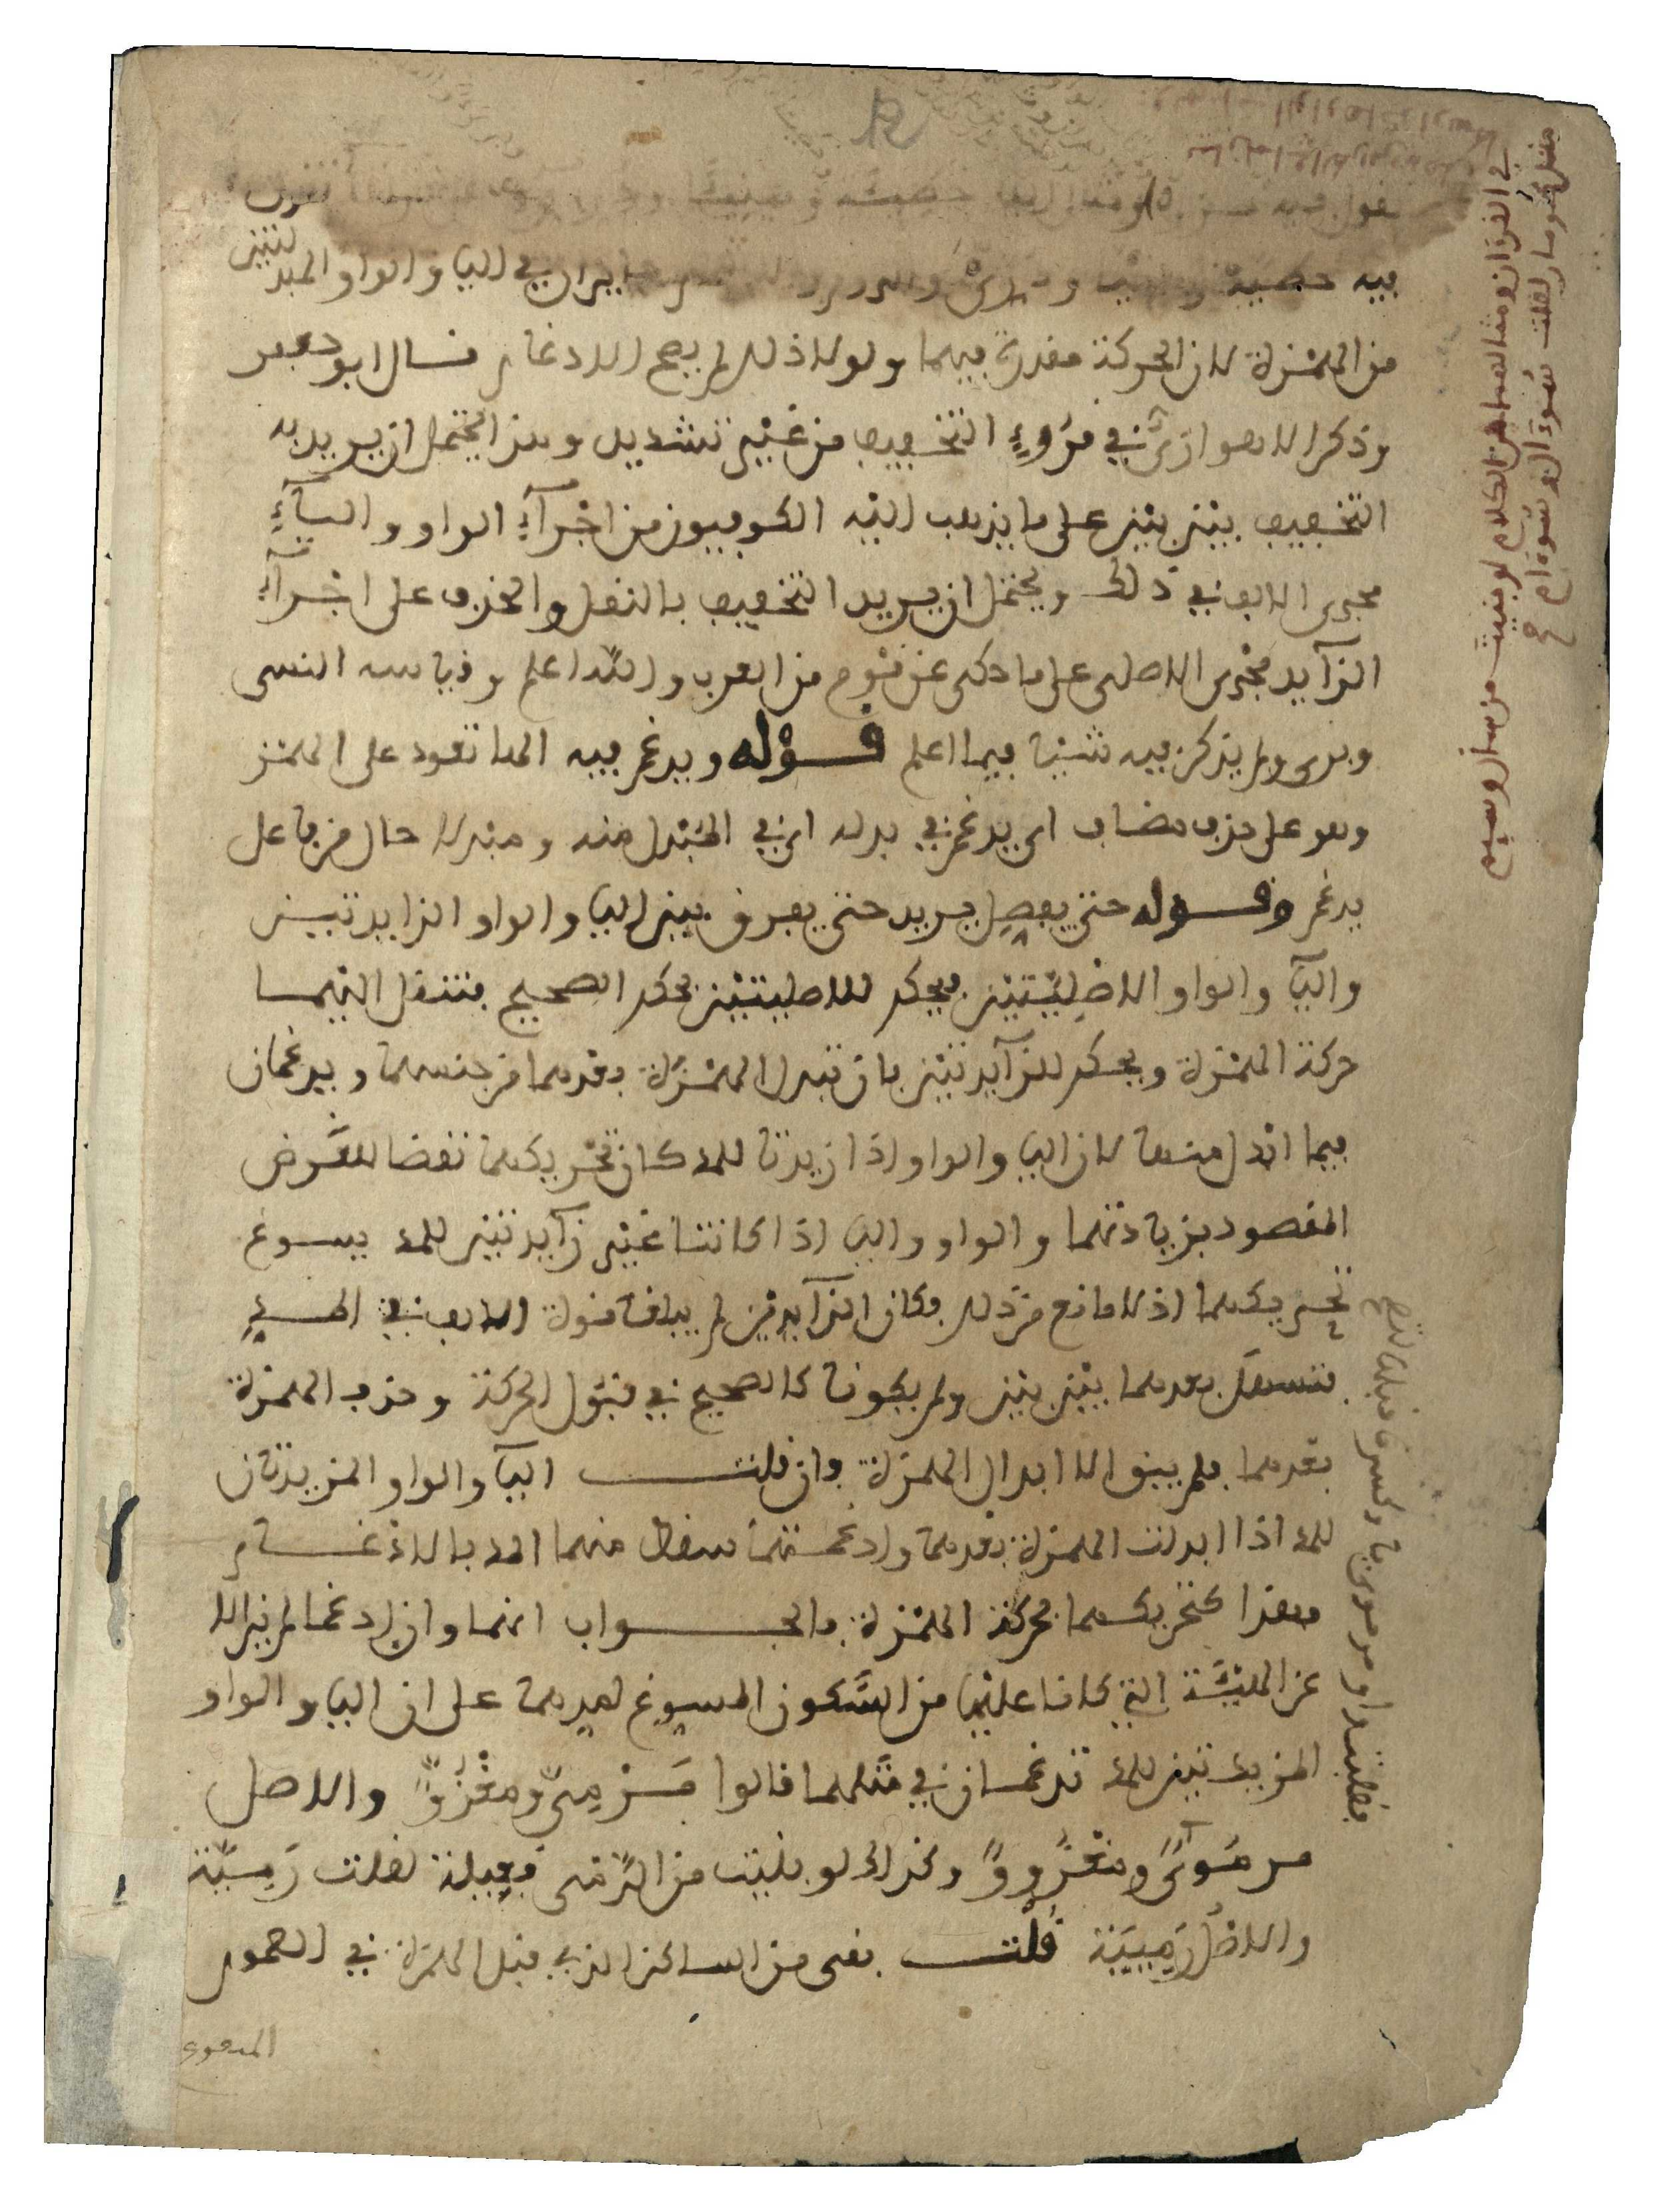 فيه خطية
جايزان في اليا والواو المبدلتين
من الهمزة لان الحركة مقدرة فيهما ولولا ذلك لم يصح الادغام قال ابو جعفر
وذكر الاهوازي في قروء التخفيف من غير تشديد وهذا يحتمل ان يريد به
التخفيف بين بين على ما يذهب اليه الكوفيون من اجرآء الواو واليآء
مجرى الالف في ذلك ويحتمل ان يريد التخفيف بالنقل والحذف على اجرآء
الزآيد مجرى الاصلي على ما حكى عن قوم من العرب والله اعلم وقياسه النسى
وبرى ولم يذكر فيه شيئا فيما اعلم قوله ويدغم فيه الها تعود على الهمز
وهو على حذف مضاف اي يدغم في بدله اي في المبدل منه ومبدلا حال من فاعل
يدغم وقوله حتى يفصل يريد حتى يفرق بين اليا والواو الزايدتين
واليآ والواو الاصليتين فيحكم للاصليتين بحكم الصحيح فتنقل اليهما
حركة الهمزة ويحكم للزآيدتين بان تبدل الهمزة بعدهما من جنسهما ويدغمان
فيما ابدل منها لان اليا والواو اذا زيدتا للمد كان تحريكهما نقضا للغرض
المقصود بزيادتهما والواو واليا اذا كانتا غير زآيدتين للمد يسوغ
تحريكهما اذ لا مانع من ذلك فكان الزآيدتين لم يبلغا قوة الالف في المد
فتسهل بعدهما بين بين ولم يكونا كالصحيح في قبول الحركة وحذف الهمزة
بعدهما فلم يبق الا ابدال الهمزة فان قلت اليآ والواو المزيدتان
للمد اذا ابدلت الهمزة بعدهما وادغمتهما سقط منهما المد بالادغام
وهذا كتحريكهما بحركة الهمزة فالجواب انهما وان ادغما لم يزالا
عن الهيئة التي كانا عليها من السكون المسوغ لمدهما على ان اليا والواو
المزيدتين للمد تدغمان في مثلهما قالوا مرمي ومغزو والاصل
مرموي ومغزوو وكذلك لو بنيت من الرمي فعيلة لقلت رمية
والاصل رميية قلت بقى من الساكن الذي قبل الهمزة في العموم
في القرآن ومثالهما من الكلام لو بنيت من سال وسيم